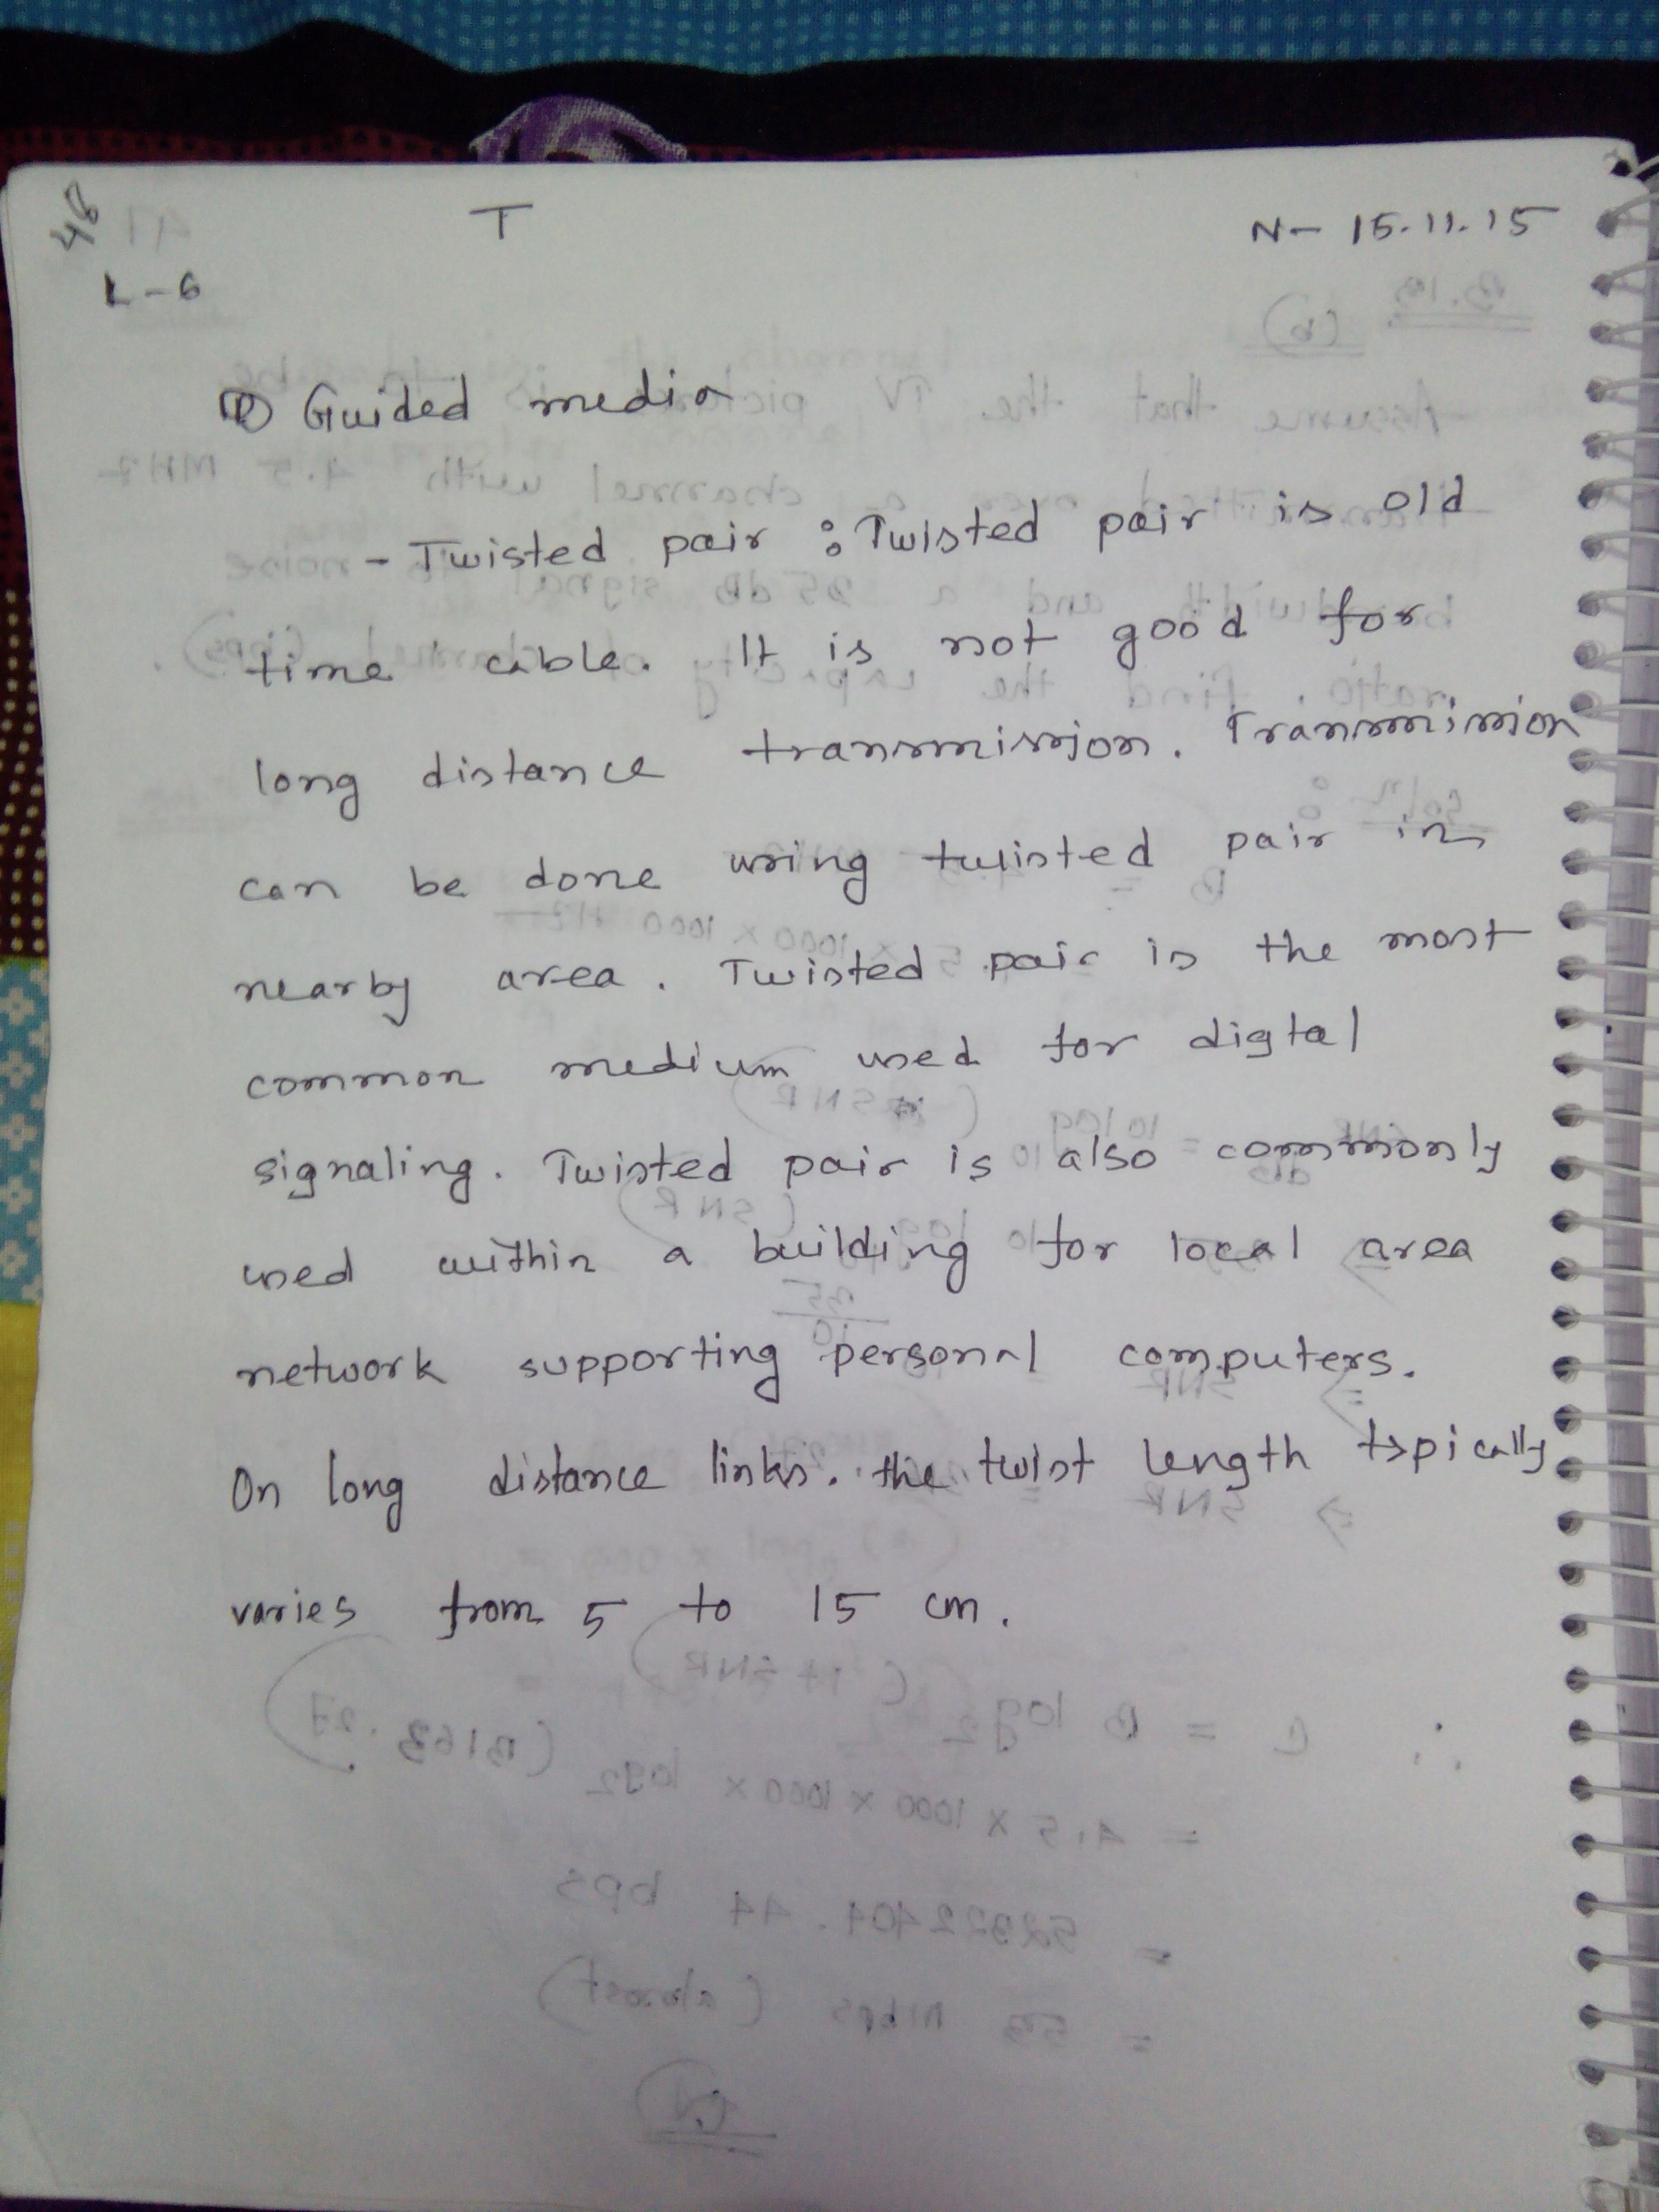 48 T N- 15.11.15
L-6
① Guided media
- Twisted pair : Twisted pair is old
time cable. It is not good for
long distance transmission. Transmission
can be done using twisted pair in
nearby area. Twisted pair is the most
common medium used for digtal
signaling. Twisted pair is also commonly
used within a building for local area
network supporting personal computers.
On long distance links. the twist length typically
varies from 5 to 15 cm.